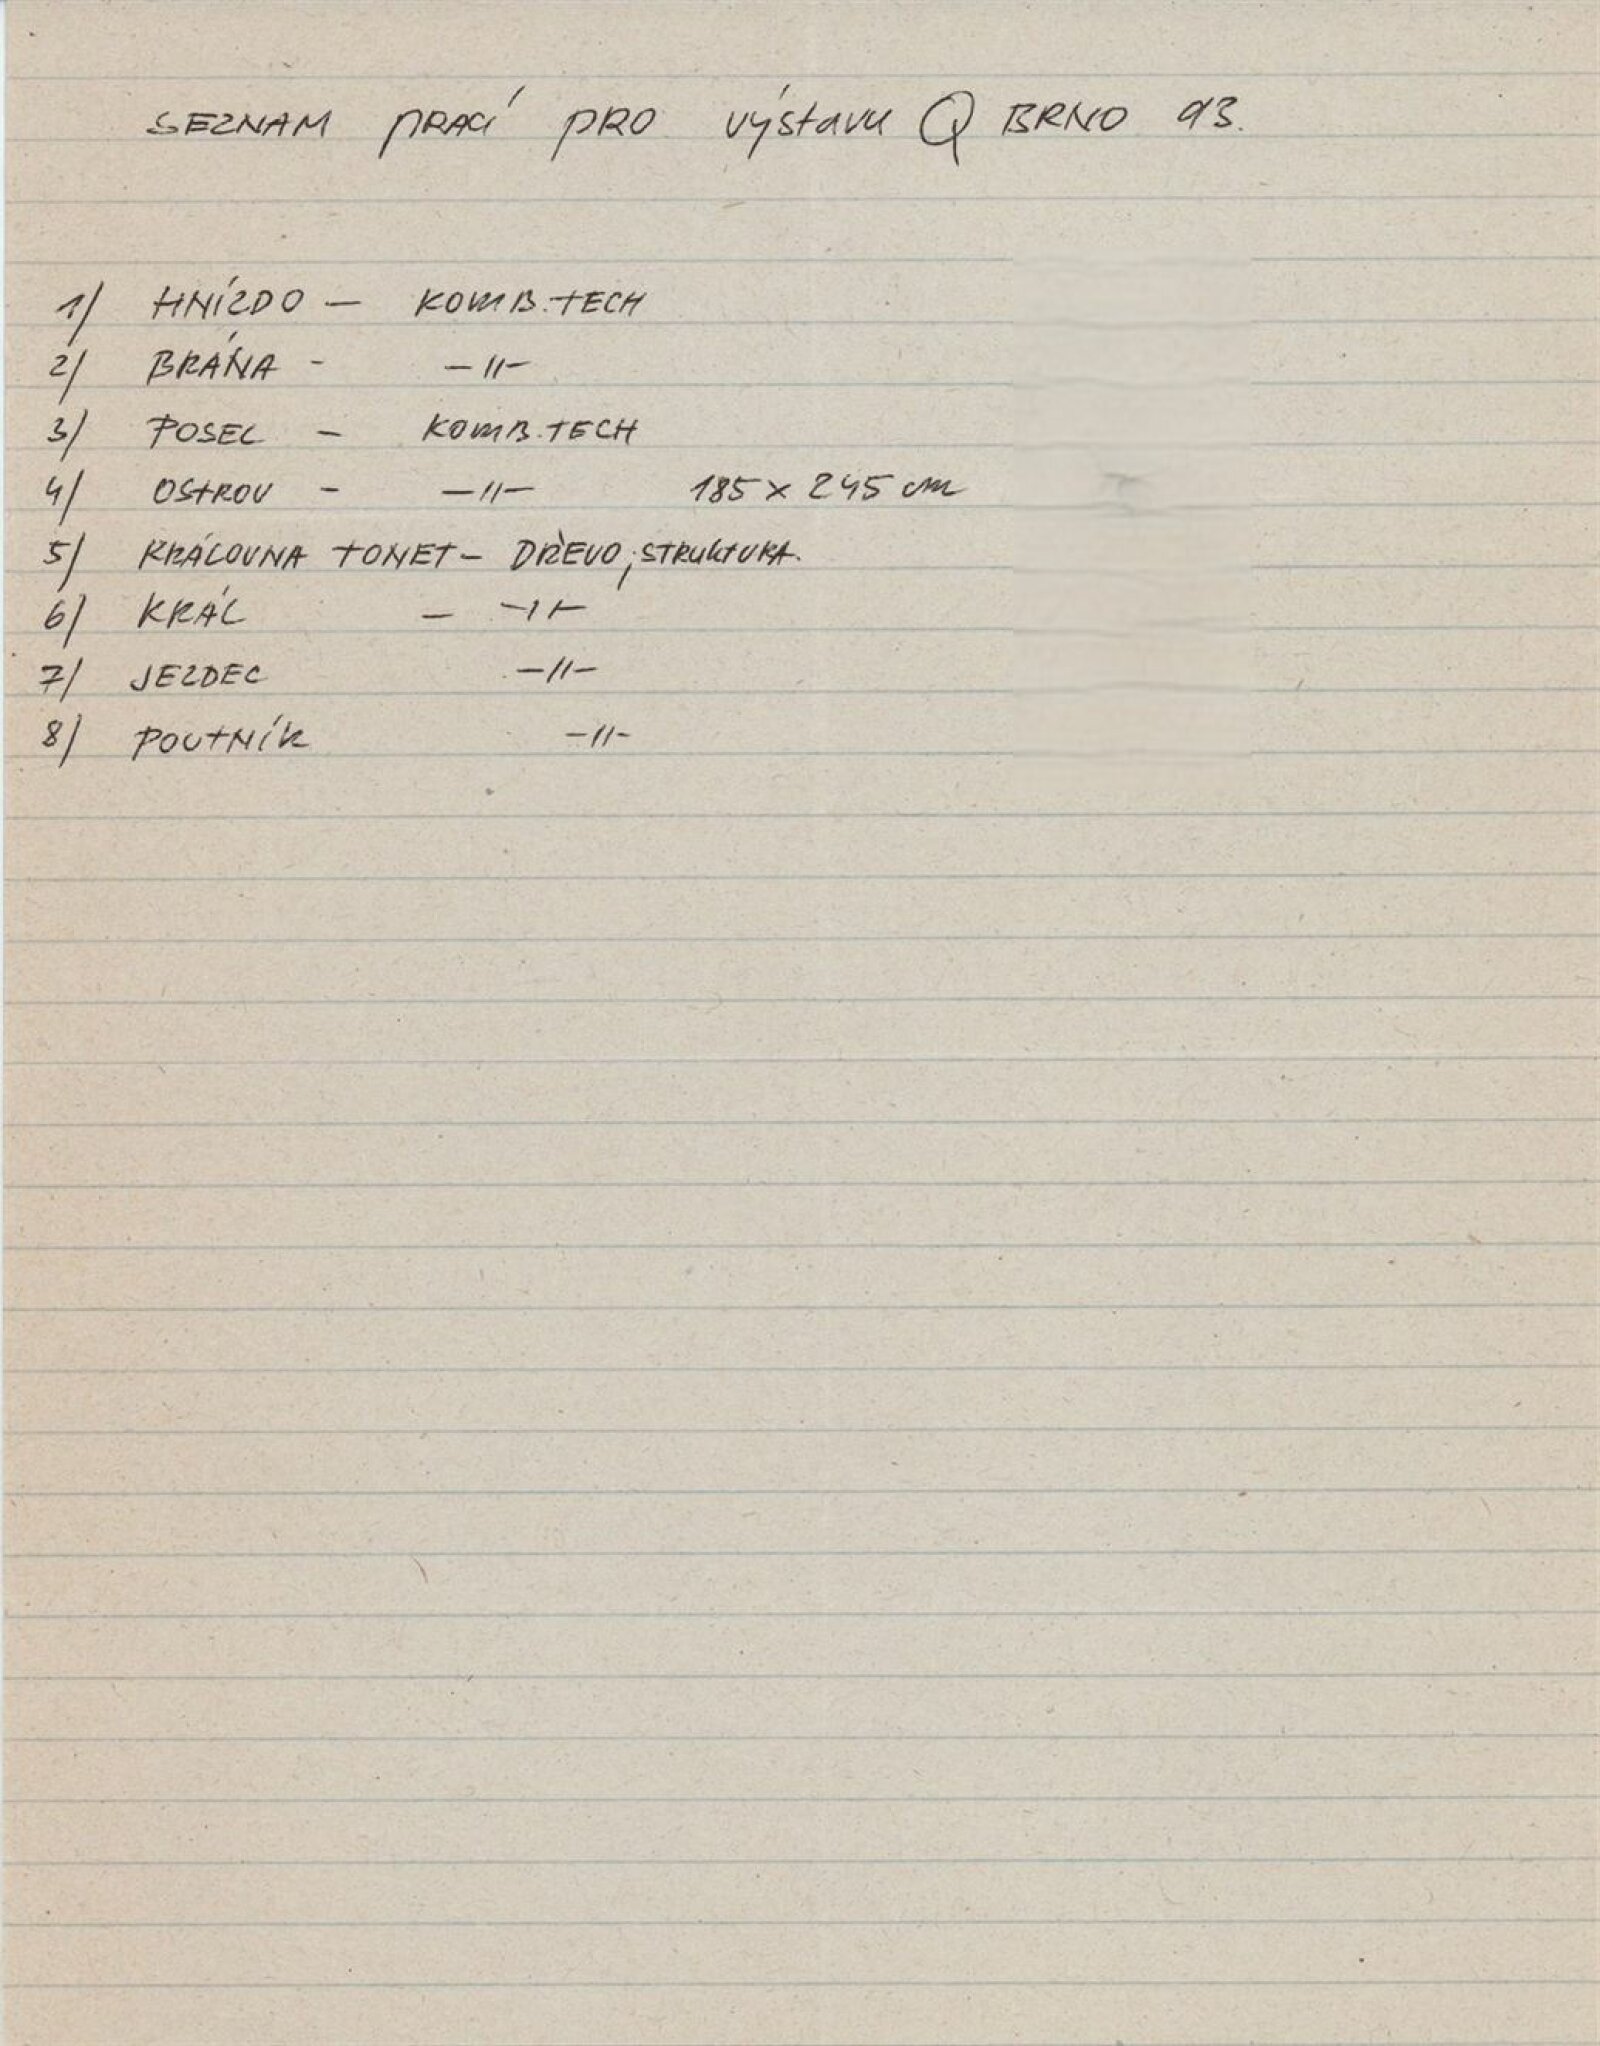 SEZNAM PRACÍ PRO výstavu Q BRNO 93.
1/ HNÍZDO — KOMB.TECH
2/ BRÁNA - —〃—
3/ POSEL — KOMB.TECH
4/ OSTROV - —〃— 185 x 245 cm
5/ KRÁLOVNA TONET — DŘEVO, STRUKTURA.
6/ KRÁL — —〃—
7/ JEZDEC —〃—
8/ POUTNÍK —〃—